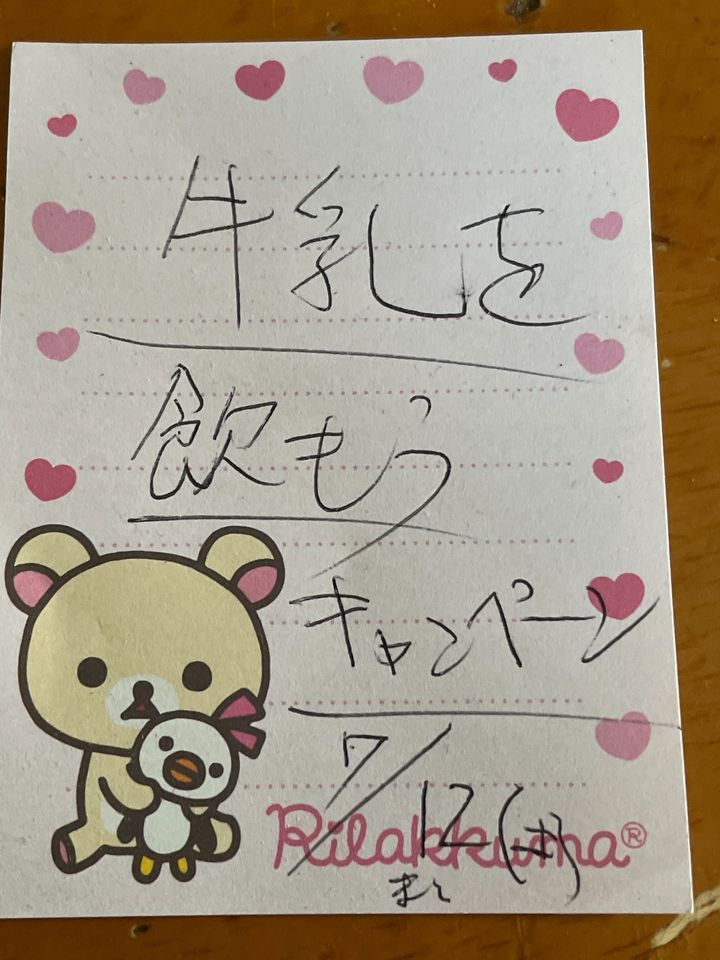 牛乳を
飲もう
キャンペーン
7/12(土)
まで
Rilakkuma®